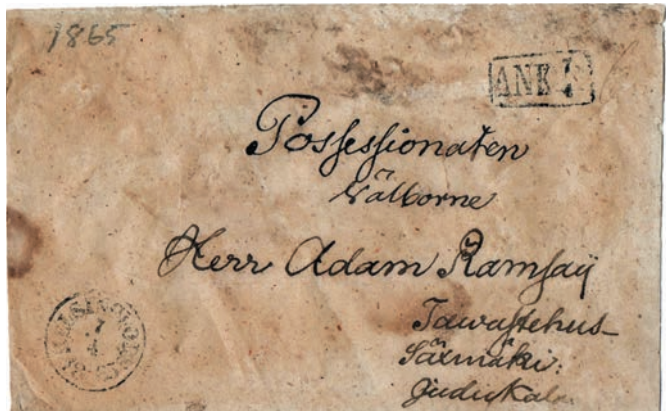 1865
ANK
Possessionaten
Välborne
Herr Adam Ramsay
Tawastehus
Säxmäki:
HELSINGFORS
7
4